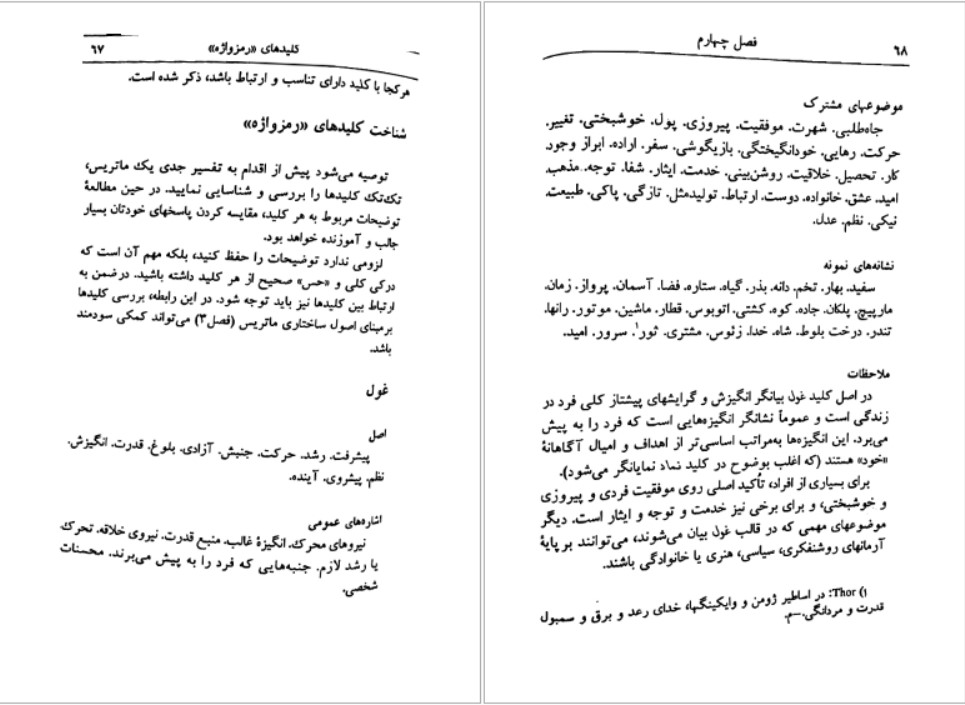 کلیدهای «رمزواژه» ۶۷
هرکجا با کلید دارای تناسب و ارتباط باشد، ذکر شده است.
شناخت کلیدهای «رمزواژه»
توصیه می‌شود پیش از اقدام به تفسیر جدی یک ماتریس،
تک‌تک کلیدها را بررسی و شناسایی نمایید. در حین مطالعهٔ
توضیحات مربوط به هر کلید، مقایسه کردن پاسخهای خودتان بسیار
جالب و آموزنده خواهد بود.
لزومی ندارد توضیحات را حفظ کنید، بلکه مهم آن است که
درکی کلی و «حس» صحیح از هر کلید داشته باشید. درضمن به
ارتباط بین کلیدها نیز باید توجه شود. در این رابطه، بررسی کلیدها
برمبنای اصول ساختاری ماتریس (فصل۳) می‌تواند کمکی سودمند
باشد.
غول
اصل
پیشرفت. رشد. حرکت. جنبش. آزادی. بلوغ. قدرت. انگیزش.
نظم. پیشروی. آینده.
اشاره‌های عمومی
نیروهای محرک. انگیزهٔ غالب. منبع قدرت. نیروی خلاقه. تحرک
یا رشد لازم. جنبه‌هایی که فرد را به پیش می‌برند. محسنات
شخصی.
۶۸ فصل چهارم
موضوعهای مشترک
جاه‌طلبی. شهرت. موفقیت. پیروزی. پول. خوشبختی. تغییر.
حرکت. رهایی. خودانگیختگی. بازیگوشی. سفر. اراده. ابراز وجود.
کار. تحصیل. خلاقیت. روشن‌بینی. خدمت. ایثار. شفا. توجه. مذهب.
امید. عشق. خانواده. دوست. ارتباط. تولیدمثل. تازگی. پاکی. طبیعت.
نیکی. نظم. عدل.
نشانه‌های نمونه
سفید. بهار. تخم. دانه. بذر. گیاه. ستاره. فضا. آسمان. پرواز. زمان.
مارپیچ. پلکان. جاده. کوه. کشتی. اتوبوس. قطار. ماشین. موتور. رانها.
تندر. درخت بلوط. شاه. خدا. زئوس. مشتری. ثور۱. سرور. امید.
ملاحظات
در اصل کلید غول بیانگر انگیزش و گرایشهای پیشتاز کلی فرد در
زندگی است و عموماً نشانگر انگیزه‌هایی است که فرد را به پیش
می‌برد. این انگیزه‌ها به‌مراتب اساسی‌تر از اهداف و امیال آگاهانهٔ
«خود» هستند (که اغلب بوضوح در کلید نماد نمایانگر می‌شود).
برای بسیاری از افراد، تأکید اصلی روی موفقیت فردی و پیروزی
و خوشبختی، و برای برخی نیز خدمت و توجه و ایثار است. دیگر
موضوعهای مهمی که در قالب غول بیان می‌شوند، می‌توانند بر پایهٔ
آرمانهای روشنفکری، سیاسی، هنری یا خانوادگی باشند.
۱) Thor: در اساطیر ژومن و وایکینگها، خدای رعد و برق و سمبول
قدرت و مردانگی.ـــم.